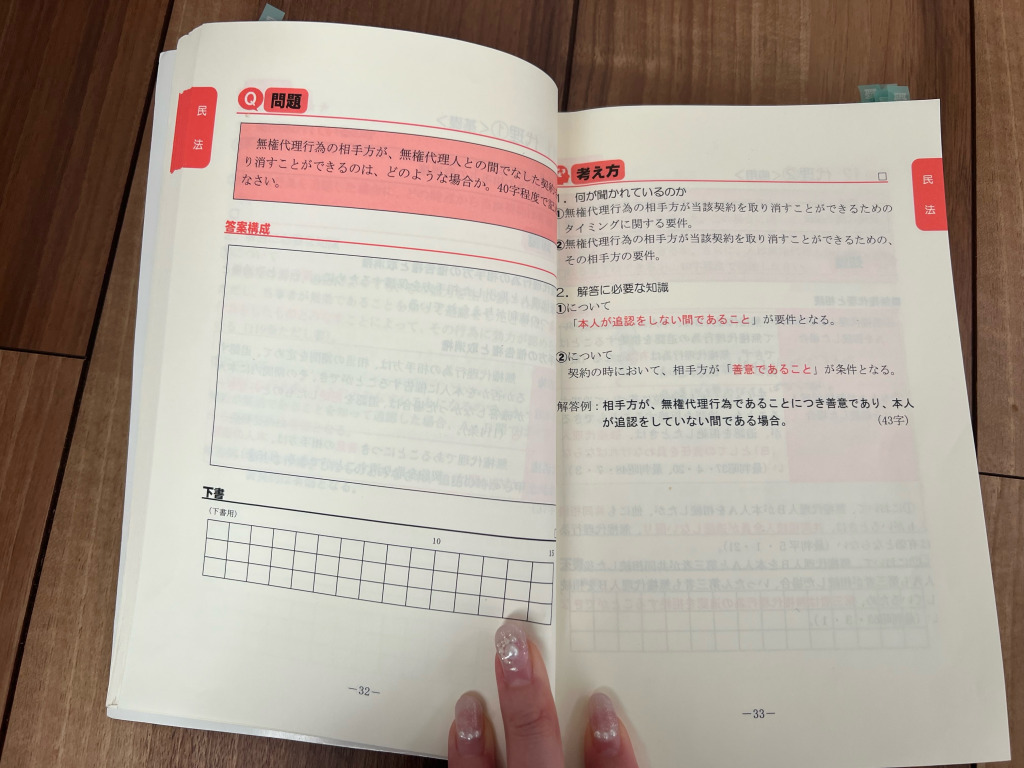 民法
Q 問題
無権代理行為の相手方が、無権代理人との間でなした契約
り消すことができるのは、どのような場合か。40字程度で記
なさい。
答案構成
下書
（下書用）
10
15
－32－
考え方
1．何が聞かれているのか
①無権代理行為の相手方が当該契約を取り消すことができるための
タイミングに関する要件。
②無権代理行為の相手方が当該契約を取り消すことができるための、
その相手方の要件。
2．解答に必要な知識
①について
「本人が追認をしない間であること」が要件となる。
②について
契約の時において、相手方が「善意であること」が条件となる。
解答例：相手方が、無権代理行為であることにつき善意であり、本人
が追認をしていない間である場合。 （43字）
民法
－33－